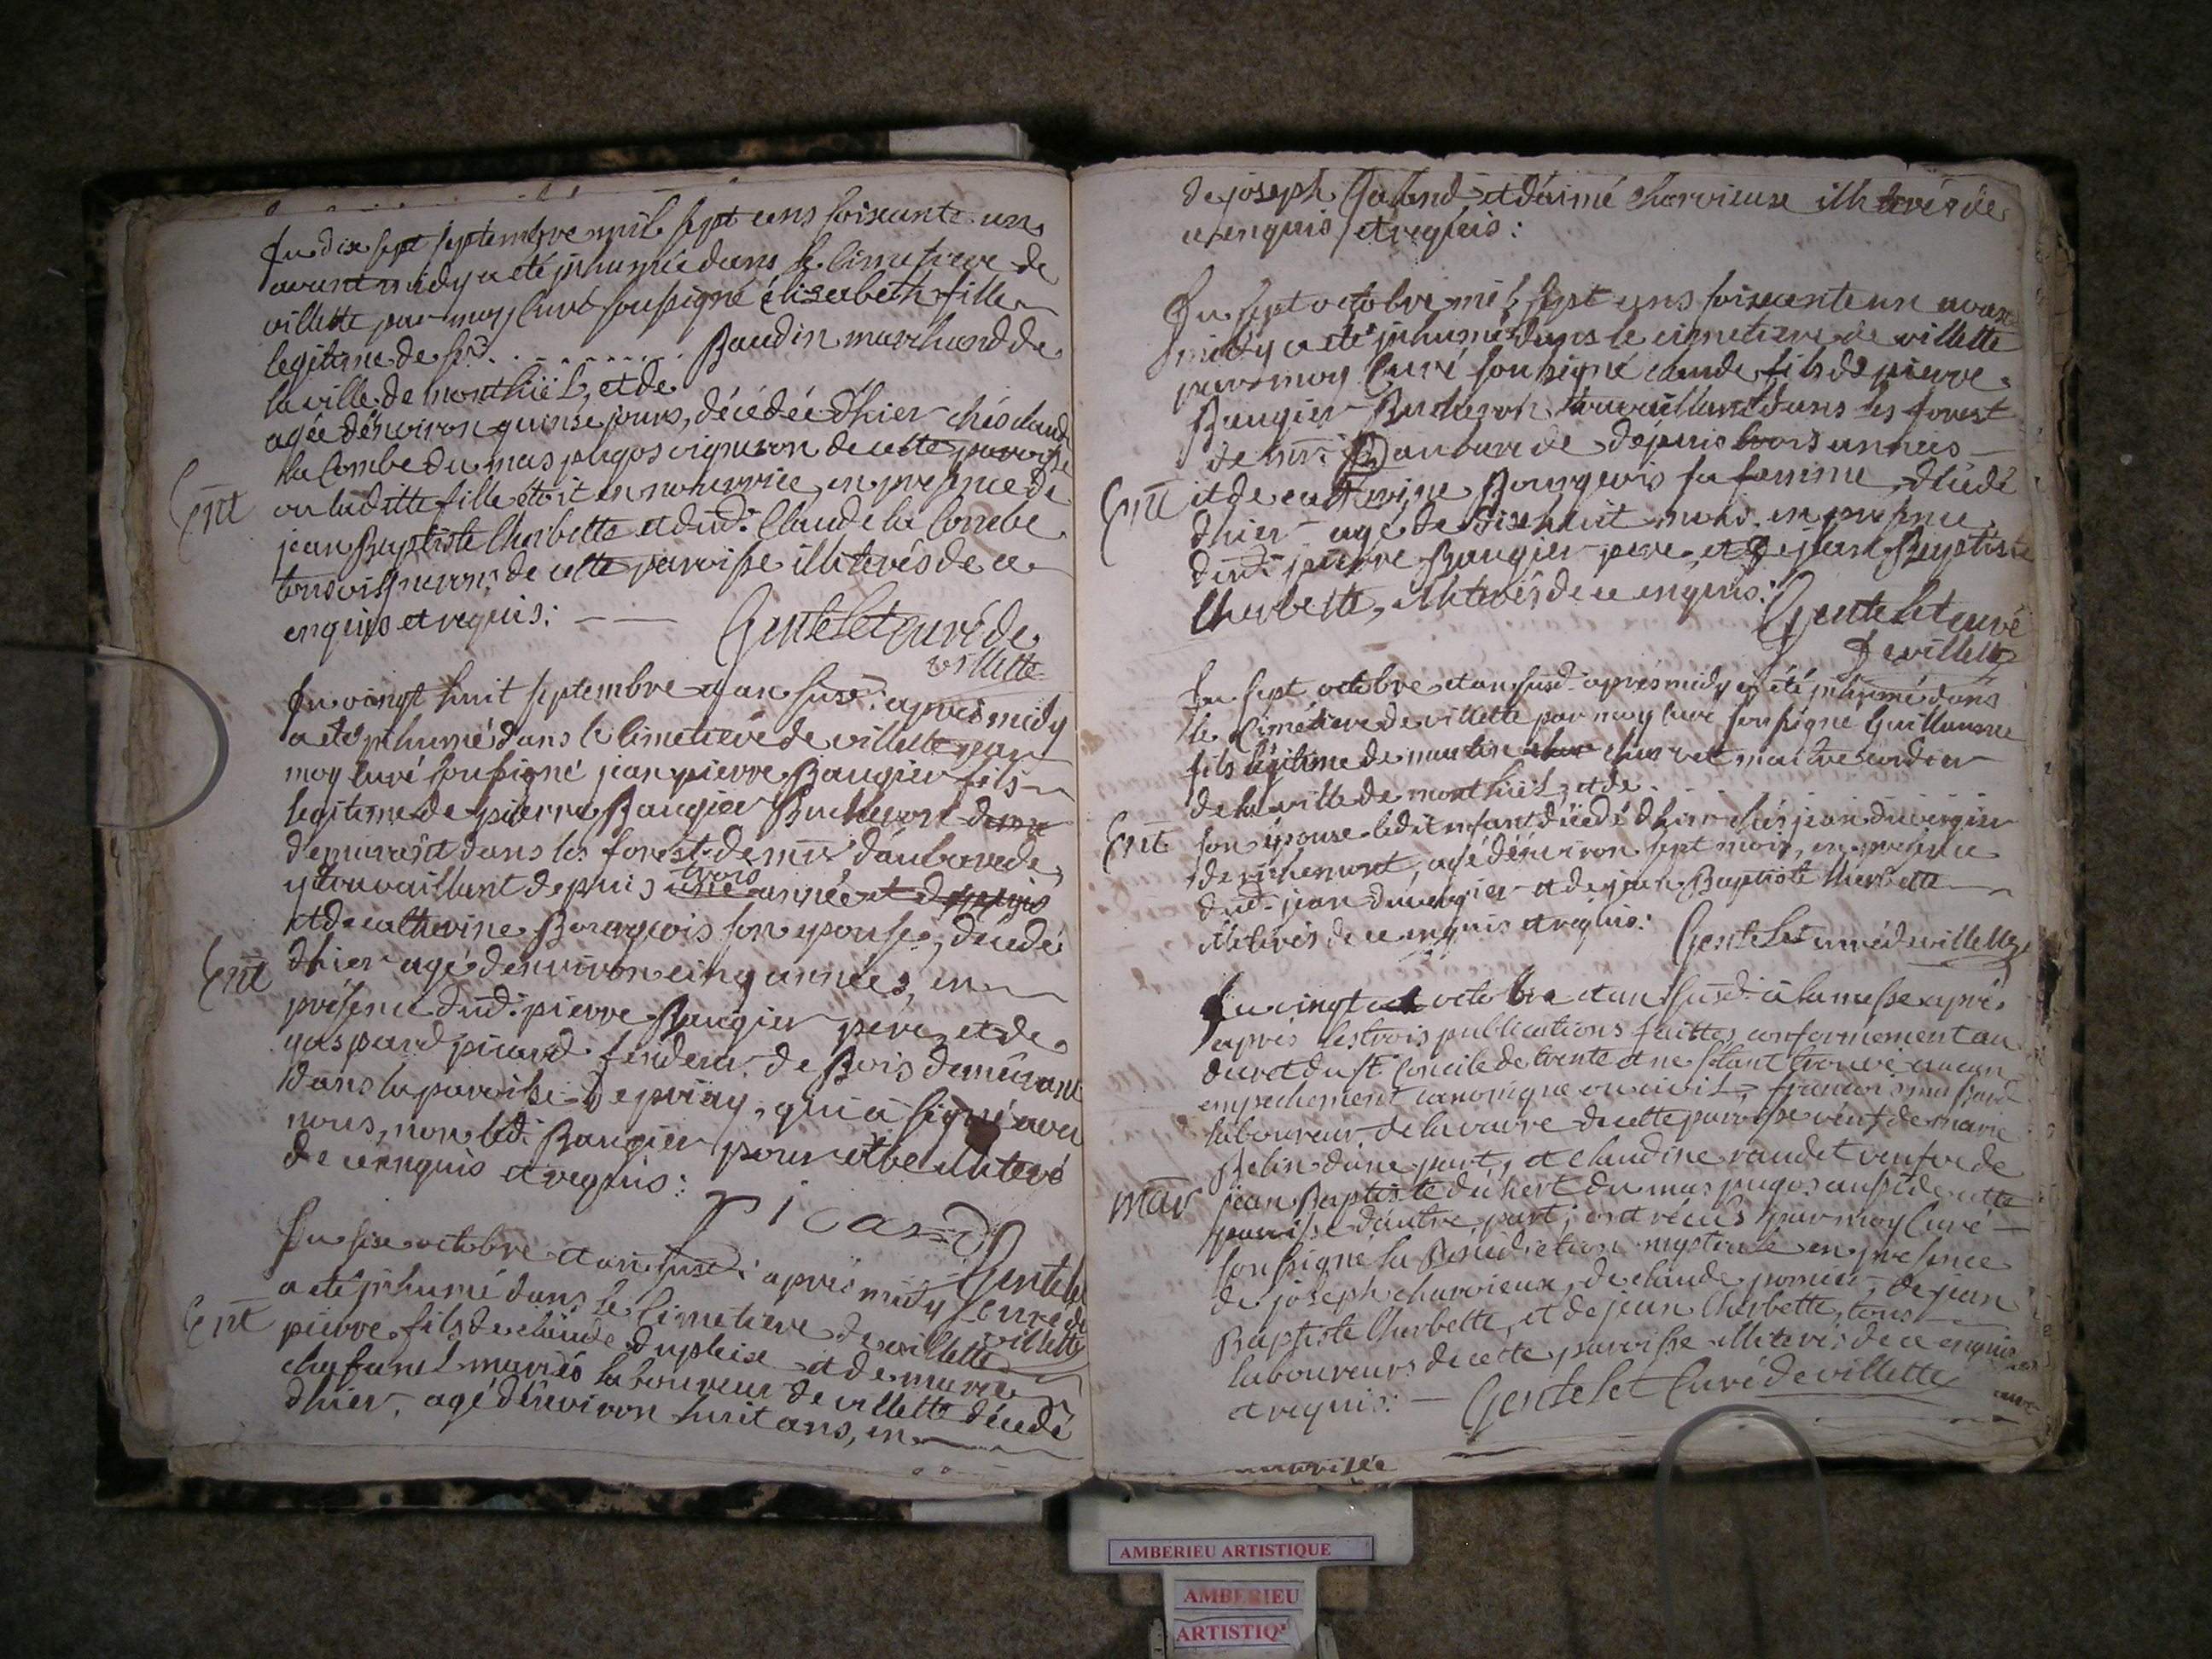 Du dix sept septembre mil sept cens soixante un
avant midy a été jnhumée dans le cimetiere de
villette par moy Curé soussigné élisabeth fille
legitime de sr. . . . . . . . . . . Baudin marchand de
la ville de monthüel, et de
agée d'environ quinse jours, décédée d'hier chés claude
la Combe du mas pugos vigneron de cette paroisse
Ent
ou laditte fille étoit en nourrice, en presence de
jean Baptiste Cherbette et dudt. Claude la Combe
tous vignerons de cette paroisse illiterés de ce
enquis et requis: — —
Gentelet curé de
villette
Du vingt huit septembre et an susd: apres midy
a eté jnhumé dans le Cimetiere de villette par
moy Curé soussigné jean pierre Baugier fils
legitime de pierre Baugier Bucheron deme
demeurant dans les forest de mr. daubarede
trois
y travaillant depuis une année et depuis
et de catherine Bourgeois son epouse, décedé
Ent
dhier agé d'environ cinq années, en
présence dud: pierre Baugier pere, et de
gaspard picard fendeur de Bois demeurant
dans la paroisse de priay, qui a signé avec
nous, non led: Baugier pour etre illiteré
de ce enquis et requis:
Picard
Gentelet
Curé de
villette
Du six octobre et an susd: apres midy
a eté jnhumé dans le Cimetiere de villette
Ent
pierre fils de claude dupleix et de marie
chafanel mariés laboureur de villette décedé
dhier, agé d'environ huit ans, en
de joseph Galland et d'aimé charvieux illiterés de
ce enquis et requis:
Du sept octobre mil sept cens soixante un avant
midy a eté jnhumé dans le cimetiere de villette
par moy Curé soussigné claude fils de pierre
Baugier Bucheron travaillant dans les forest
de mr: Daubarede depuis trois années
Ent
et de catherine Bourgeois sa femme, décedé
dhier agé de dixhuit mois en presence
dud: pierre Baugier pere, et de jean Baptiste
Cherbette, illiterés de ce enquis:
Gentelet curé
de villette
Du sept octobre et an susd. aprés midy a été jnhumé dans
le Cimetiere de villette par moy curé soussigné Guillaume
fils légitime de martin char charvet maitre cordier
de la ville de monthüel, et de
Ent
son épouse ledit enfant décedé dhier chés jean duvergier
de richemont, agé d'environ sept mois, en presence
dud: jean duvergier et de jean Baptiste Cherbette
illiterés de ce enquis et requis:
Gentelet curé de villette
Du vingt octobre et an susd. a la messe aprés
aprés les trois publications faittes conformement au
decret du st. Concile de trente et ne s'étant trouvé aucun
empechement canonique ou civil, francois
laboureur de la vavre de cette paroisse veuf de marie
Belin d'une part, et claudine raudet veufve de
mar
jean Baptiste duhert du mas pugos aussi de cette
paroisse d'autre part; ont recus par moy Curé
soussigné la Bénédiction nuptiale en presence
de joseph charvieux, de claude pomier, de jean
Baptiste Cherbette, et de jean Cherbette, tous
laboureurs de cette paroisse illiterés de ce enquis
et requis: — Gentelet Curé de villette
AMBERIEU ARTISTIQUE
AMBERIEU
ARTISTIQ